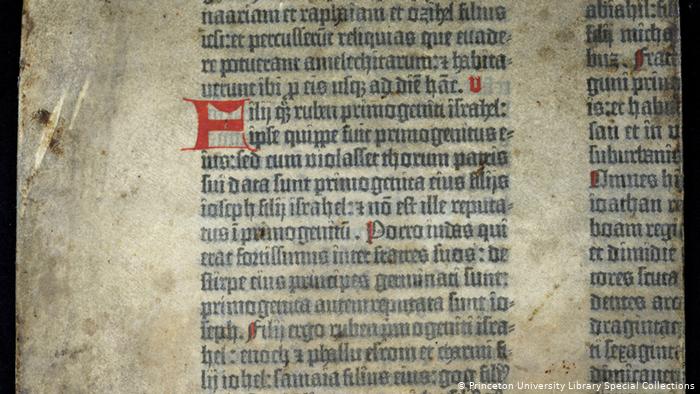 naariam et raphaiam et ozihel filius
iesi: et percusserūt reliquias que euade=
re potuerant amelechitarum: ⁊ habita=
uerunt ibi p eis usq; ad diē hāc. V
Filij qꝫ ruben primogeniti israhel:
ipse quippe fuit primogenitus e=
ius: sed cum violasset thorum patris
sui data sunt primogenita eius filijs
ioseph filij israhel: ⁊ nō est ille reputa=
tus ī primogenitū. Porro iudas qui
erat fortissimus inter fratres suos: de
stirpe eius principes germinati sunt:
primogenita autem reputata sunt io=
seph. Filij ergo ruben pmogeniti isra=
hel: enoch ⁊ phallu esrom et charmi fi=
lij iohel: samaia filius eius: gog fili9
abishil: fili
filij micha
buz. Frat
guni prin
is: et habi
san et in v
suburbani
Omnes hi
ioathan re
boam regi
et dimidie
tores scuta
dentes arc
draginta
ti sexagint
dimicaner
© Princeton University Library Special Collections